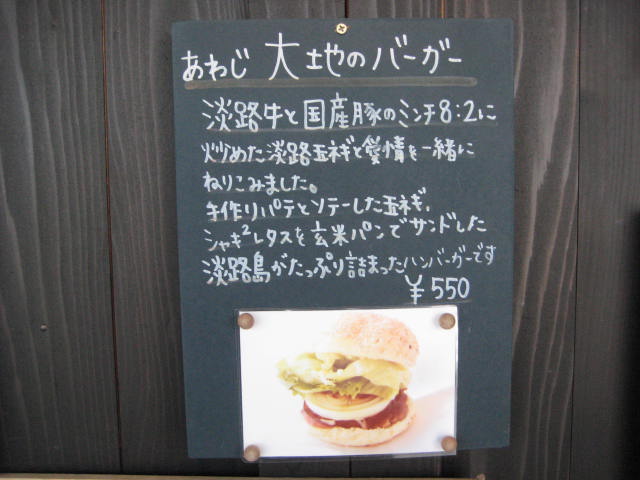 あわじ 大地のバーガー
淡路牛と国産豚のミンチ8:2に
炒めた淡路玉ネギと愛情を一緒に
ねりこみました。
手作りパテとソテーした玉ネギ、
シャキ²レタスを玄米パンでサンドした
淡路島がたっぷり詰まったハンバーガーです
¥550